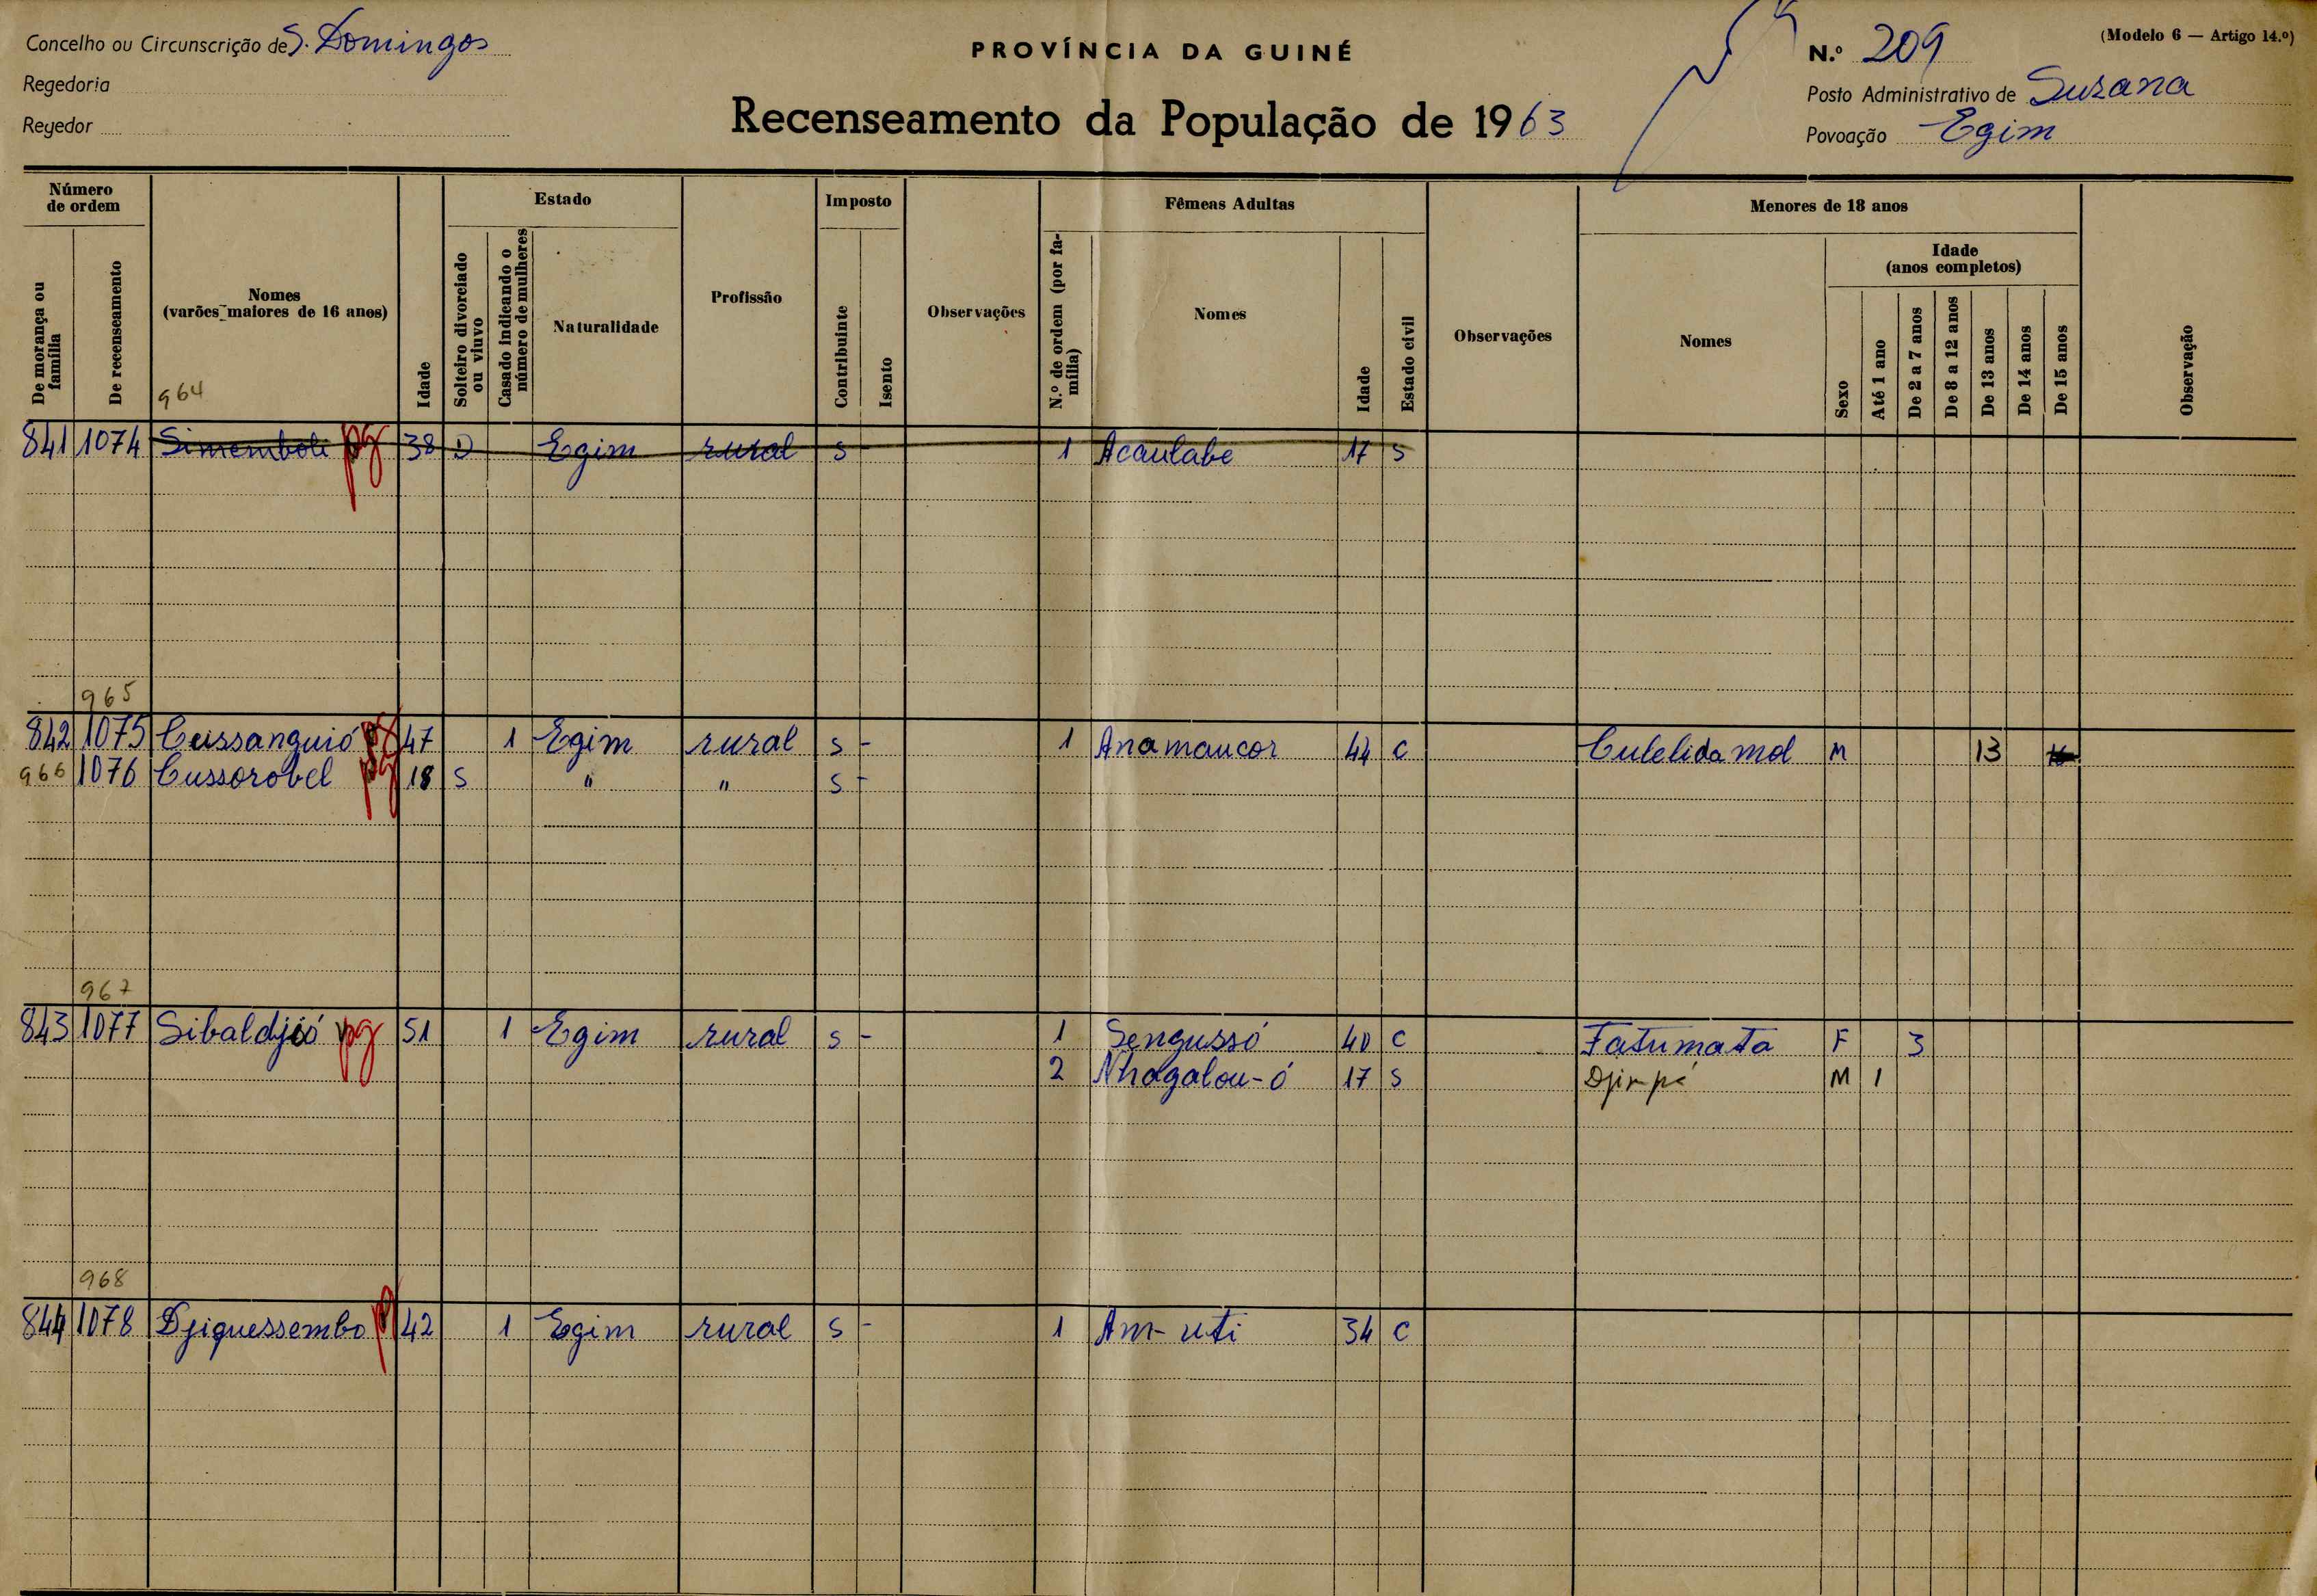 Concelho ou Circunscrição de S. Domingos
Regedoria
Regedor
PROVÍNCIA DA GUINÉ
Recenseamento da População de 1963
N.º 209
(Modelo 6 — Artigo 14.º)
Posto Administrativo de Suzana
Povoação Egim
Número de ordem
De morança ou família
De recenseamento
Nomes
(varões maiores de 16 anos)
Idade
Estado
Solteiro divorciado ou viuvo
Casado indicando o número de mulheres
Naturalidade
Profissão
Imposto
Contribuinte
Isento
Observações
Fêmeas Adultas
N.º de ordem (por família)
Nomes
Idade
Estado civil
Observações
Menores de 18 anos
Nomes
Sexo
Idade
(anos completos)
Até 1 ano
De 2 a 7 anos
De 8 a 12 anos
De 13 anos
De 14 anos
De 15 anos
Observação
964
841 1074 Simemboli pg 38 D Egim rural s 1 Acaulabe 17 s
965
842 1075 Cussanguió pg 47 1 Egim rural s - 1 Anamaucor 44 C Culelidamol M 13
966 1076 Cussorobel pg 18 S " " s -
967
843 1077 Sibaldjió pg 51 1 Egim rural s - 1 Sengussó 40 C Fatumata F 3
2 Nhagalou-ó 17 S Djimpá M 1
968
844 1078 Djiquessembo 42 1 Egim rural s - 1 Am-uti 34 C